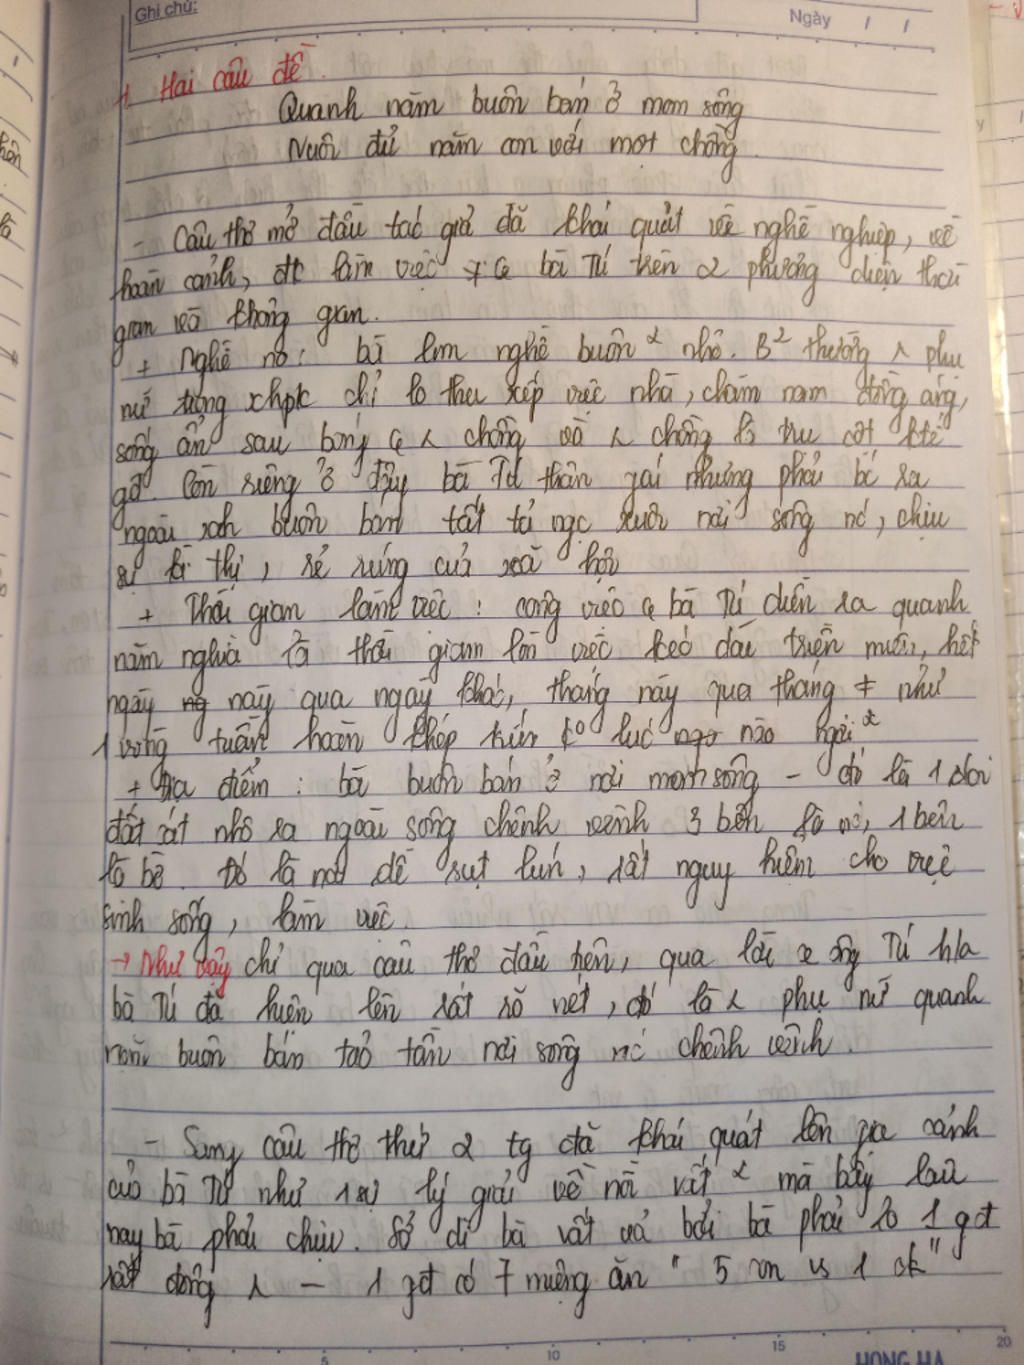 Ghi chú:
Ngày / /
1. Hai câu đề.
Quanh năm buôn bán ở mom sông
Nuôi đủ năm con với một chồng.
- Câu thơ mở đầu tác giả đã khái quát về nghề nghiệp, về
hoàn cảnh, đk làm việc bà Tú trên 2 phương diện thời
gian và không gian.
+ Nghề no: bà lm nghề buôn nhỏ. B² thường phụ
nữ trong xhpk chỉ lo thu xếp việc nhà, chăm nom đồng áng,
sống ẩn sau bóng chồng và chồng là trụ cột ktế
gđ. Còn riêng ở đây bà Tú thân gái nhưng phải bề ra
ngoài xh buôn bán tất tả ngc xuôi nơi sông nc, chịu
sự kì thị, rẻ rúng của xã hội
+ Thời gian làm việc: công việc bà Tú diễn ra quanh
năm nghĩa là thời gian làm việc kéo dài triền miên, hết
ngày này qua ngày khác, tháng này qua tháng ≠ như
1 vòng tuần hoàn khép kín k⁰ lúc nào ngơi
+ Địa điểm: bà buôn bán ở nơi mom sông - đó là 1 doi
đất cát nhô ra ngoài sông chênh vênh 3 bên là nc, 1 bên
là bờ. Đó là nơi dễ sụt lún, rất nguy hiểm cho việc
sinh sống, làm việc.
→ Như vậy chỉ qua câu thơ đầu tiên, qua lời ông Tú h/a
bà Tú đã hiện lên rất rõ nét, đó là phụ nữ quanh
năm buôn bán tảo tần nơi sông nc chênh vênh.
- Sang câu thơ thứ 2 tg đã khái quát lên gia cảnh
của bà Tú như 1 sự lý giải về nỗi vất mà bấy lâu
nay bà phải chịu. Sở dĩ bà vất vả bởi bà phải lo 1 gđ
rất đông - 1 gđ có 7 miệng ăn " 5 con vs 1 ck"
5 10 15 20
HONG HA